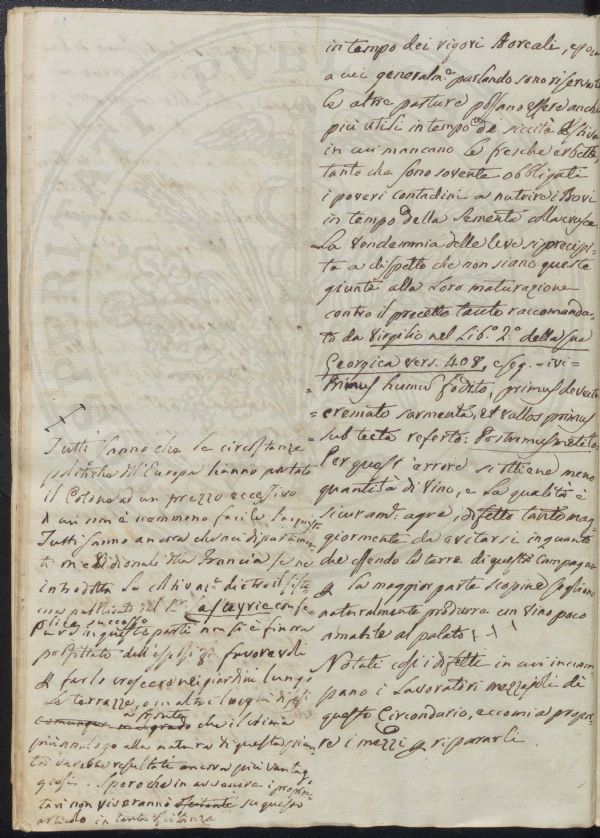 in tempo dei rigori boreali, epoca
a cui general.e parlando sono riservate
le altre pasture possano essere anche
più utili in tempo di siccità estiva
in cui mancano le fresche erbette,
tanto che sono sovente obbligati
i poveri contadini a nutrire i Bovi
in tempo della sementa alla crusca
La vendemmia delle Uve si precipi-
ta a dispetto che non siano queste
giunte alla loro maturazione
contro il precetto tanto raccomanda-
to da Virgilio nel Lib.o 2.o della sua
Georgica vers. 408, e seg. - ivi -
= Primus humum fodito, primus devecta
= cremato sarmenta, et vallos primus
= sub tecta referto: Postremus metito =
Per quest'errore si ottiene meno
quantità di vino, e la qualità è
sicuram.e agra, difetto tanto mag-
giormente da evitarsi in quanto
che essendo le terre di queste Campagne
p la maggior parte sogliono
naturalmente produrre un vino poco
amabile al palato
Notati così i difetti in cui inciam-
pano i Lavoratori mezzajoli di
questo Circondario, eccomi a propor-
re i mezzi p ripararli.
Tutti sanno che le circostanze
politiche dell'Europa hanno portato
il Cotone ad un prezzo eccessivo
Tutti sanno ancora che nei dipartimen-
ti meridionali della Francia se ne è
introdotta la coltivaz.e dietro il siste-
ma pubblicato dal Sr. Lasteyrie con fe-
lice successo
pure in queste parti non si è finora
profittato dell'esposiz.i favorevoli
p farlo crescere nei giardini lungo
le terrazze, o in altri luoghi difesi
a fronte che il clima
più analogo alla natura di questa pian-
ta avrebbe resultati ancora più vantag-
giosi. Spero che in avvenire i proprie-
tari non viveranno su questo
articolo in tanta esitanza